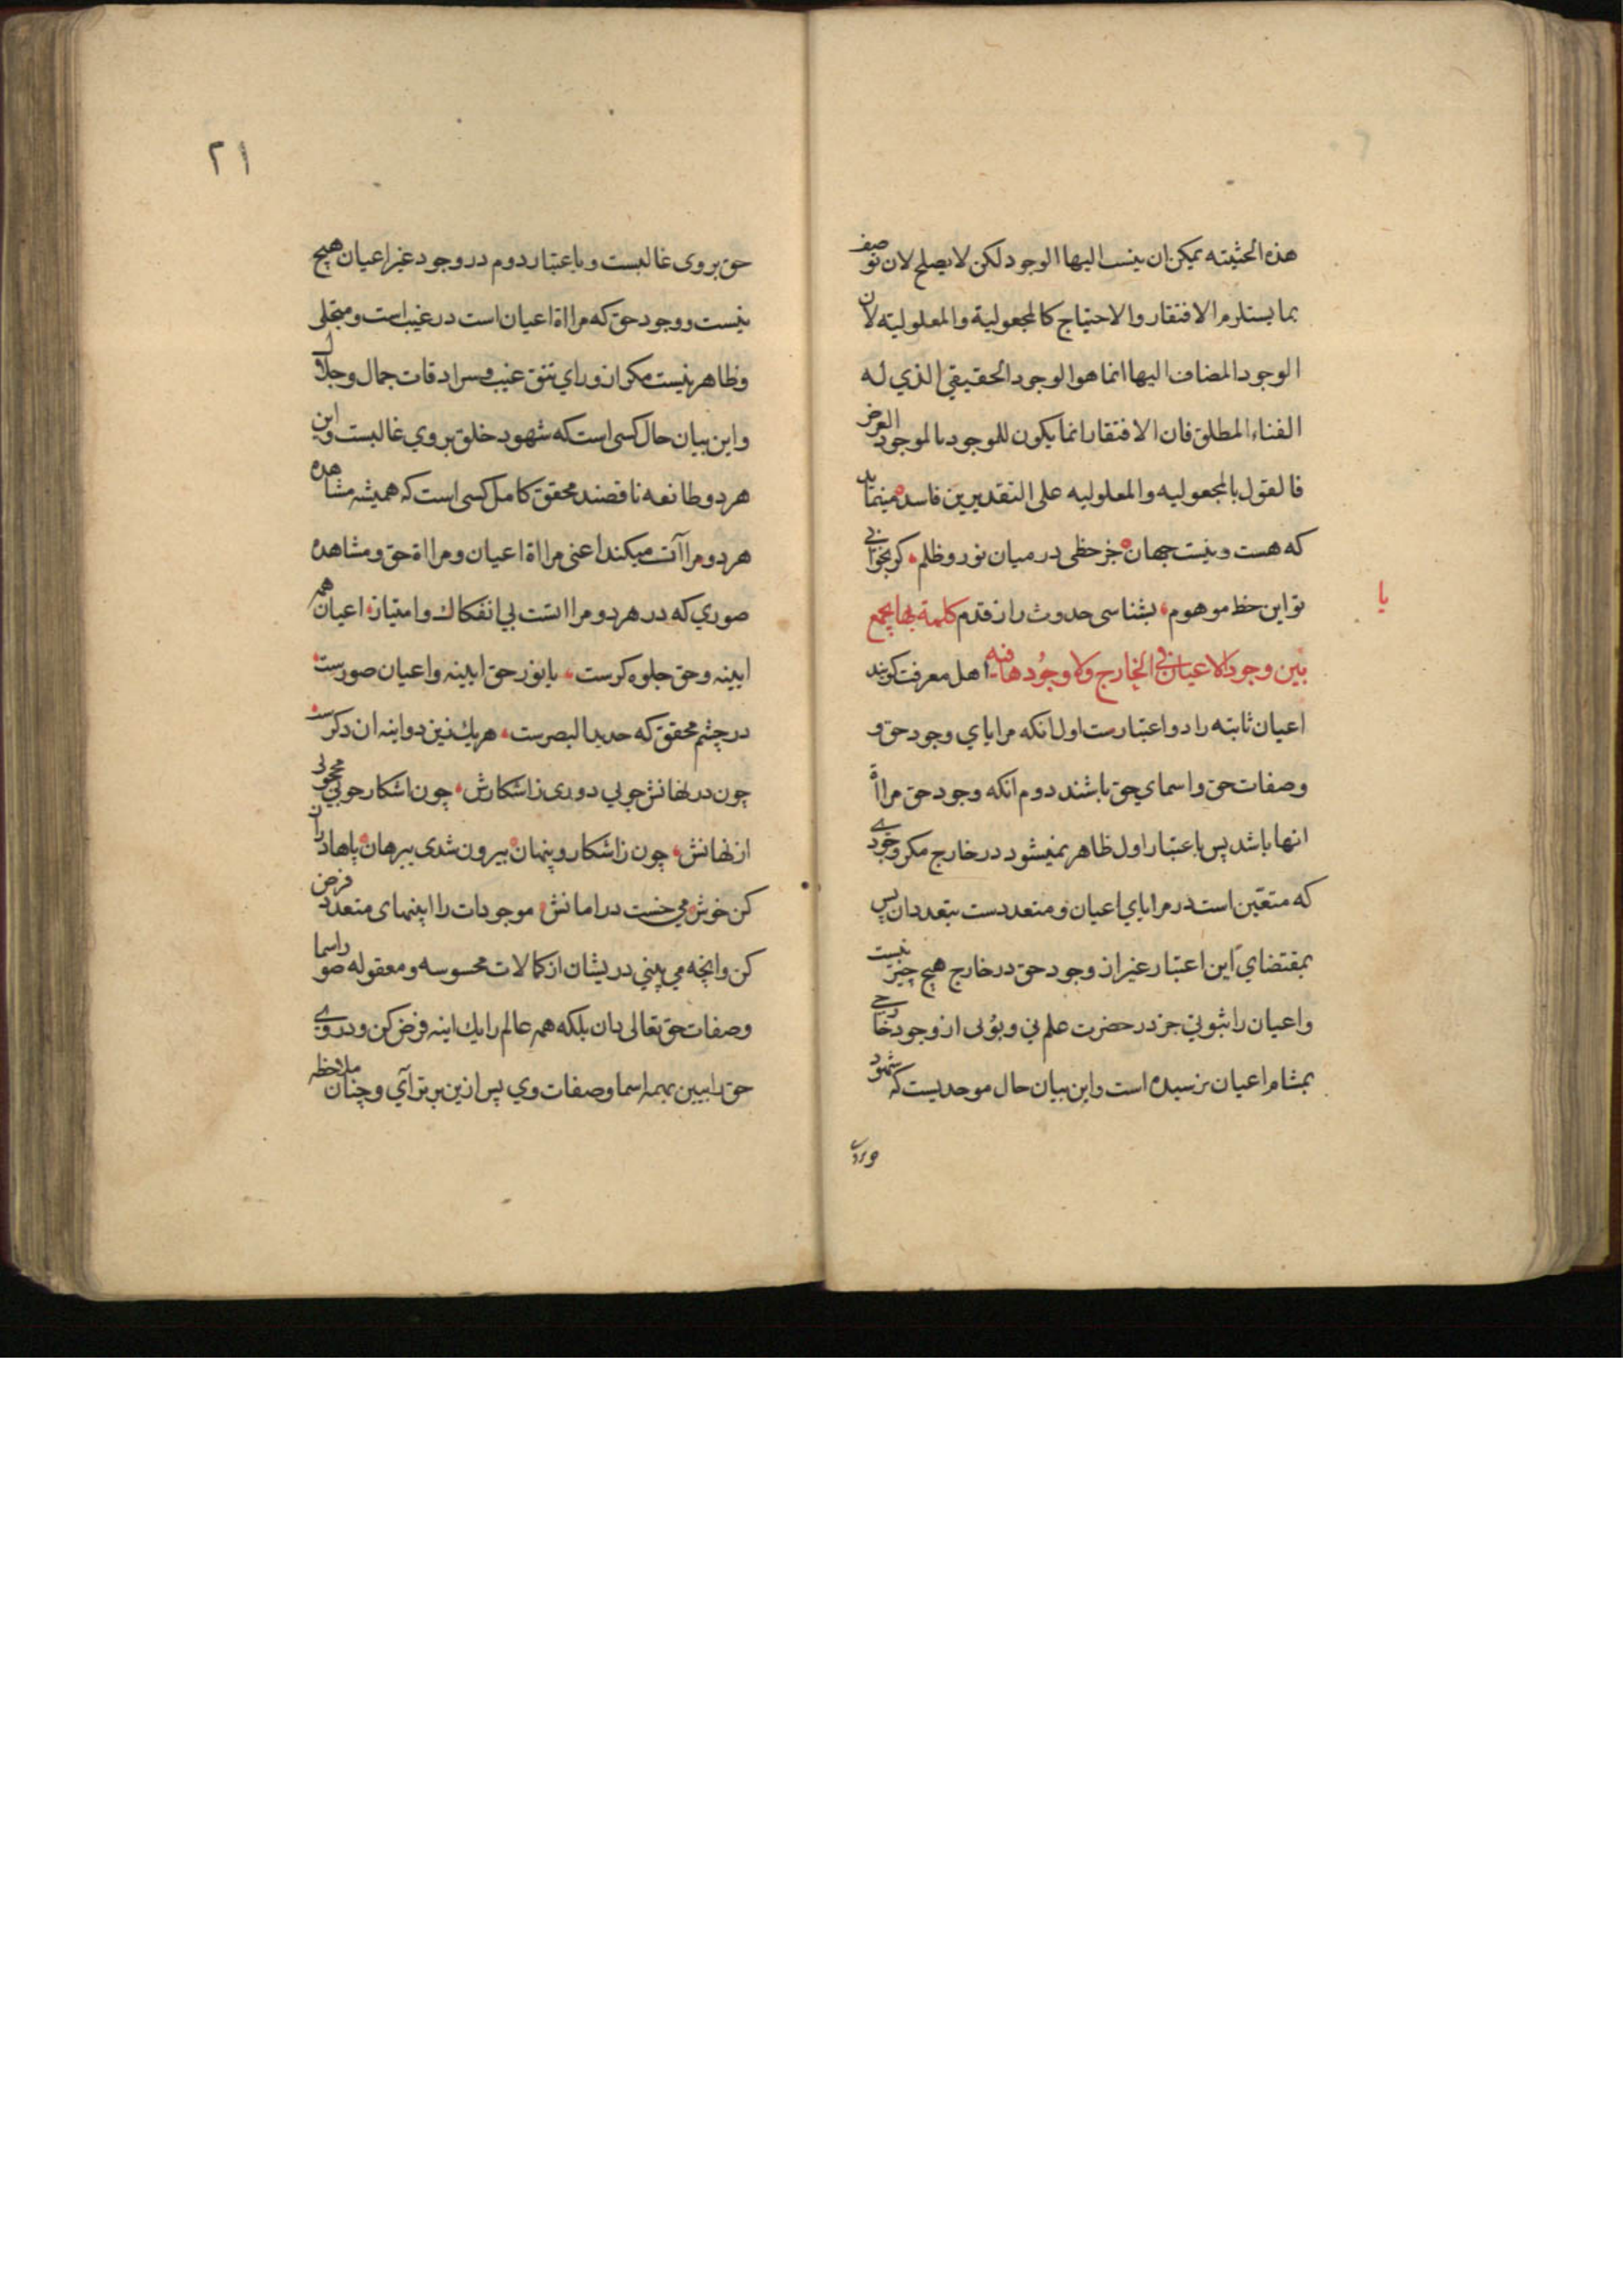 هذه الحثيته يمكن ان ينسب اليها الوجود لكن لا يصلح لان توصف
بما يستلزم الافتقار والاحتياج كالمجعولية والمعلوليته لان
الوجود المضاف اليها انما هو الوجود الحقيقي الذي له
الغناء المطلق فان الافتقار انما يكون للموجود بالموجود العرض
فالقول بالمجعوليه والمعلوليه على التقديرين فاسد مينمايد
که هست و نیست جهان جز خطی در میان نور و ظلم کر بخوانی
تو این خط موهوم بشناسی حدوث را ز قدم کلمة بها یجمع
یا
بین وجود الاعیان فی الخارج ولا وجودها فیه اهل معرفت کویند
اعیان ثابته را دو اعتبارست اول انکه مرایای وجود حق و
وصفات حق و اسمای حق باشند دوم انکه وجود حق مرااة
انها باشد پس باعتبار اول ظاهر نمیشود در خارج مکر وجودی
که متعین است در مرایای اعیان و متعددست بتعدد ان پس
بمقتضای این اعتبار غیر از وجود حق در خارج هیچ چیز نیست
و اعیان را ثبوتی جز در حضرت علم نی و بوئی از وجود خارجی
بمشام اعیان نرسیده است و این بیان حال موحدیست که شهود
۲۱
حق بر وی غالبست و باعتبار دوم در وجود غیر اعیان هیچ
نیست و وجود حق که مرااة اعیان است در غیب است و متجلی
و ظاهر نیست مکر از ورای تتق غیب و سرادقات جمال و جلال
و این بیان حال کسی است که شهود خلق بر وی غالبست و این
هر دو طائفه ناقصند محقق کامل کسی است که همیشه مشاهده
هر دو مراآت میکند اعنی مرااة اعیان و مرااة حق و مشاهده
صوری که در هر دو مرااتست بی انفکاک و امتیاز اعیان همه
ایینه و حق جلوه کرست یا نور حق ایینه و اعیان صورست
در چشم محقق که حدید البصرست هر یک زین دو اینه ان دکرست
چون در نهانش جوئی دوری ز اشکارش چون اشکار جوئی محجوبی
از نهانش چون ز اشکار و پنهان بیرون شدی ببرهان پاها دراز
کن خوش می خسب در امانش موجودات را ایینهای متعدد فرض
کن وانچه می بینی دریشان از کمالات محسوسه و معقوله صور اسما
وصفات حق تعالی دان بلکه همه عالم را یک اینه فرض کن و در وی
حق را ببین بهمه اسما و صفات وی پس ازین برتر آی و چنان ملاحظه